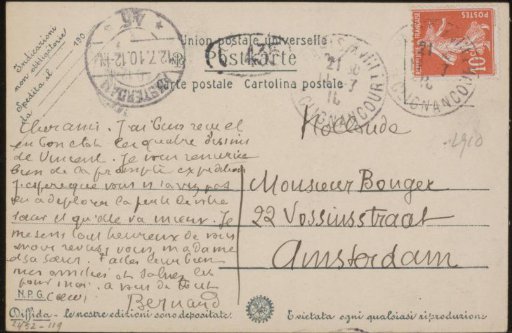 Indicazioni
non obbligatorie
Spedita il 190
da
AMSTERDAM
12.7.10.12
Union postale universelle
Postkarte
Carte postale Cartolina postale
435
CLIGNANCOURT
POSTES
10
Hollande
1910
Cher ami. J'ai bien reçu et
en bon état les quatre dessins
de Vincent. Je vous remercie
bien de la prompte expédition
J'espère que vous n'avez pas
eu à déplorer la perte de votre
sœur et qu'elle va mieux. Je
me sens tout heureux de vous
avoir revus, vous, madame
et sa sœur. Faites leur bien
mes amitiés et saluez les
pour moi. à vous de tout
cœur
Bernard
Monsieur Bonger
22 Vossiusstraat
Amsterdam
N.P.G.
Diffida - le nostre edizioni sono depositate. È vietata ogni qualsiasi riproduzione